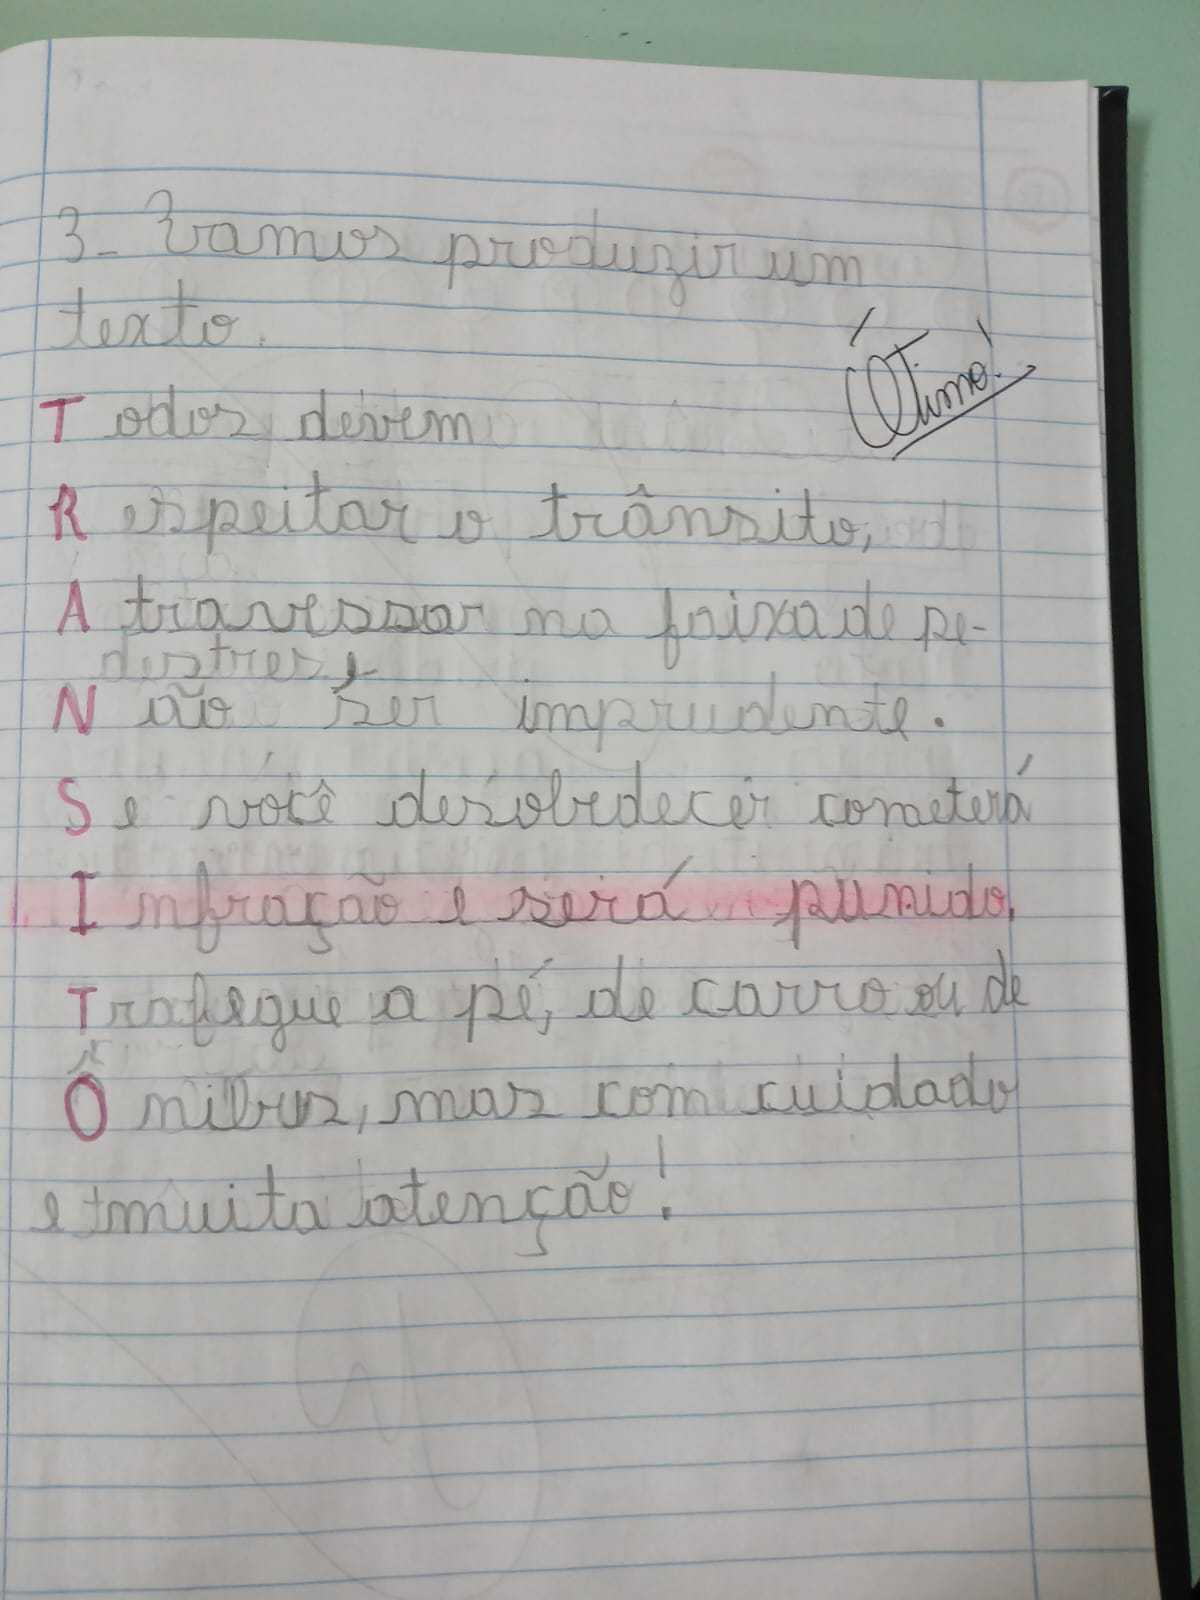 3- Vamos produzir um
texto.
Ótimo!
Todos devem
Respeitar o trânsito,
Atravessar na faixa de pe-
destres e
Não ser imprudente.
Se você desobedecer cometerá
Infração e será punido.
Trafegue a pé, de carro ou de
Ônibus, mas com cuidado
e muita atenção!